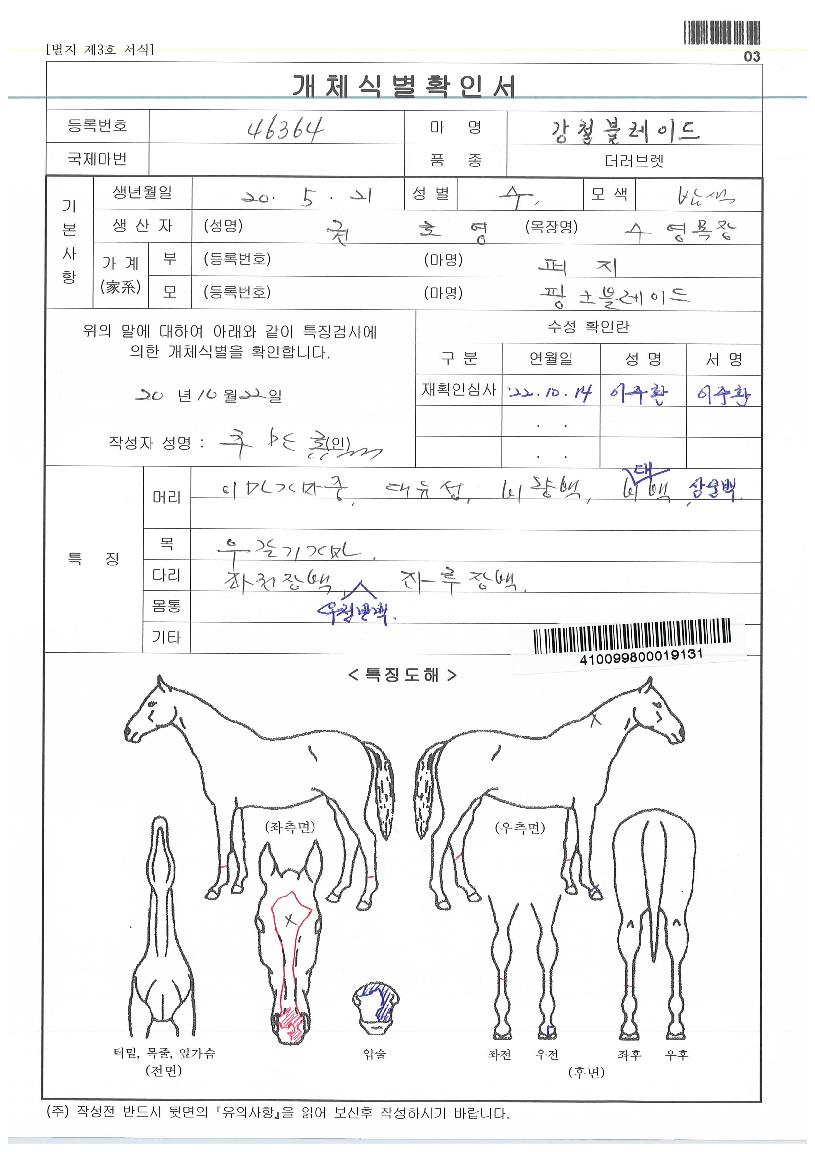 03
[별지 제3호 서식]
개체식별확인서
등록번호 46364 마 명 강철블레이드
국제마번 품 종 더러브렛
기본사항
생년월일 20. 5. 21 성 별 수. 모 색 밤색
생 산 자 (성명) 호 영 (목장명) 수영목장
가 계 (家系) 부 (등록번호) (마명) 퍼지
모 (등록번호) (마명) 핑크블레이드
위의 말에 대하여 아래와 같이 특징검사에
의한 개체식별을 확인합니다.
20 년 10 월 22 일
작성자 성명 : (인)
수성 확인란
구 분 연월일 성 명 서 명
재확인심사 '22. 10. 14 이주환 이주환
. .
. .
특 징
머리 이마가마중, 대유성, 비량백, 비대백, 상순백.
목 우갈기가마.
다리 좌전장백, 우전반백. 좌후장백.
몸통
기타
410099800019131
< 특징도해 >
(좌측면) (우측면)
턱밑, 목줄, 앞가슴
(전면)
입술
좌전 우전 좌후 우후
(후면)
(주) 작성전 반드시 뒷면의 『유의사항』을 읽어 보신후 작성하시기 바랍니다.